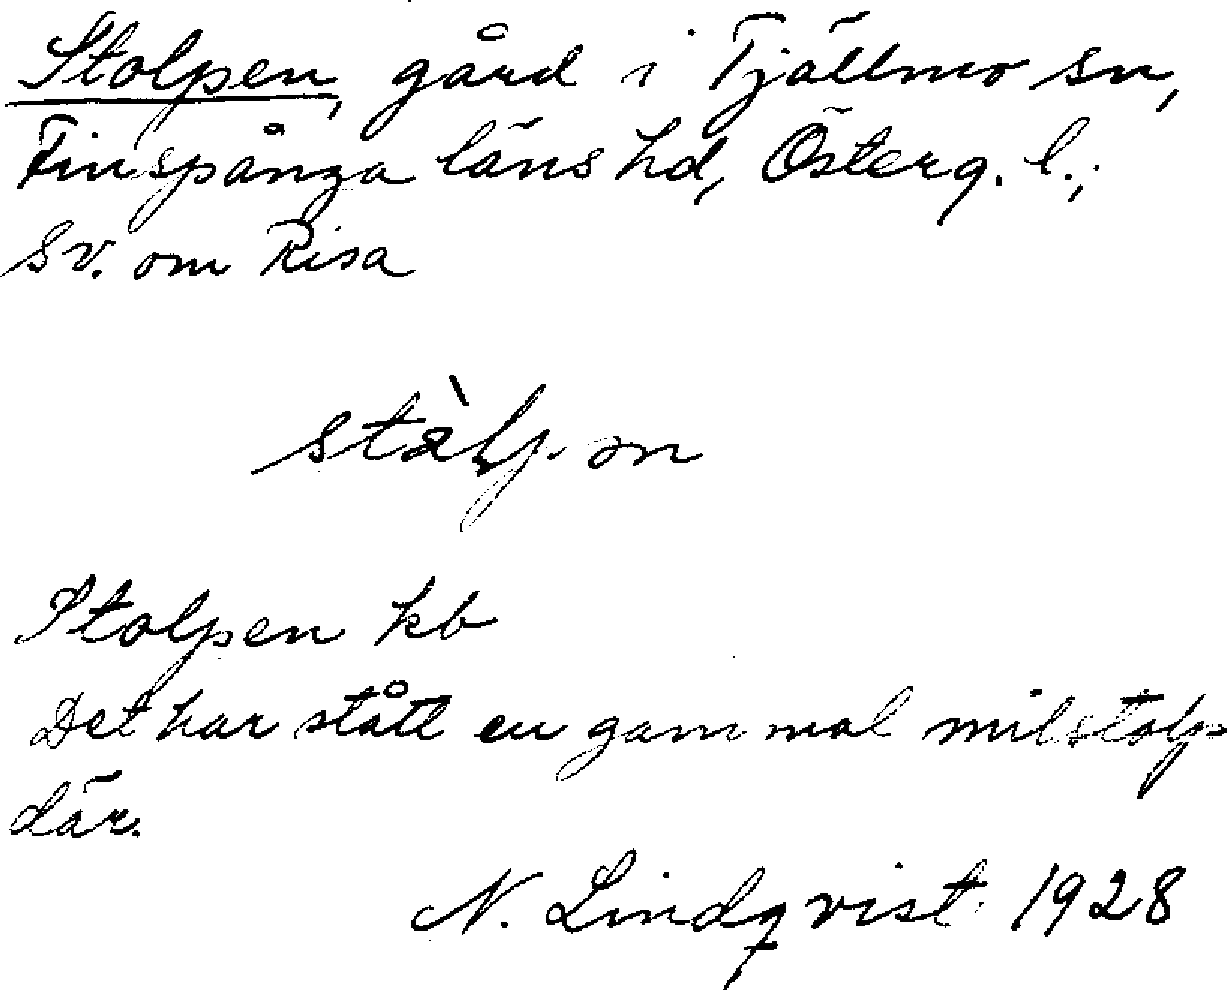 Stolpen, gård i Tjällmo sn,
Finspånga läns hd, Österg. l.;
Sv. om Risa
Stolpen kb
Det har stått en gammal milstolp
där.
N. Lindqvist 1928